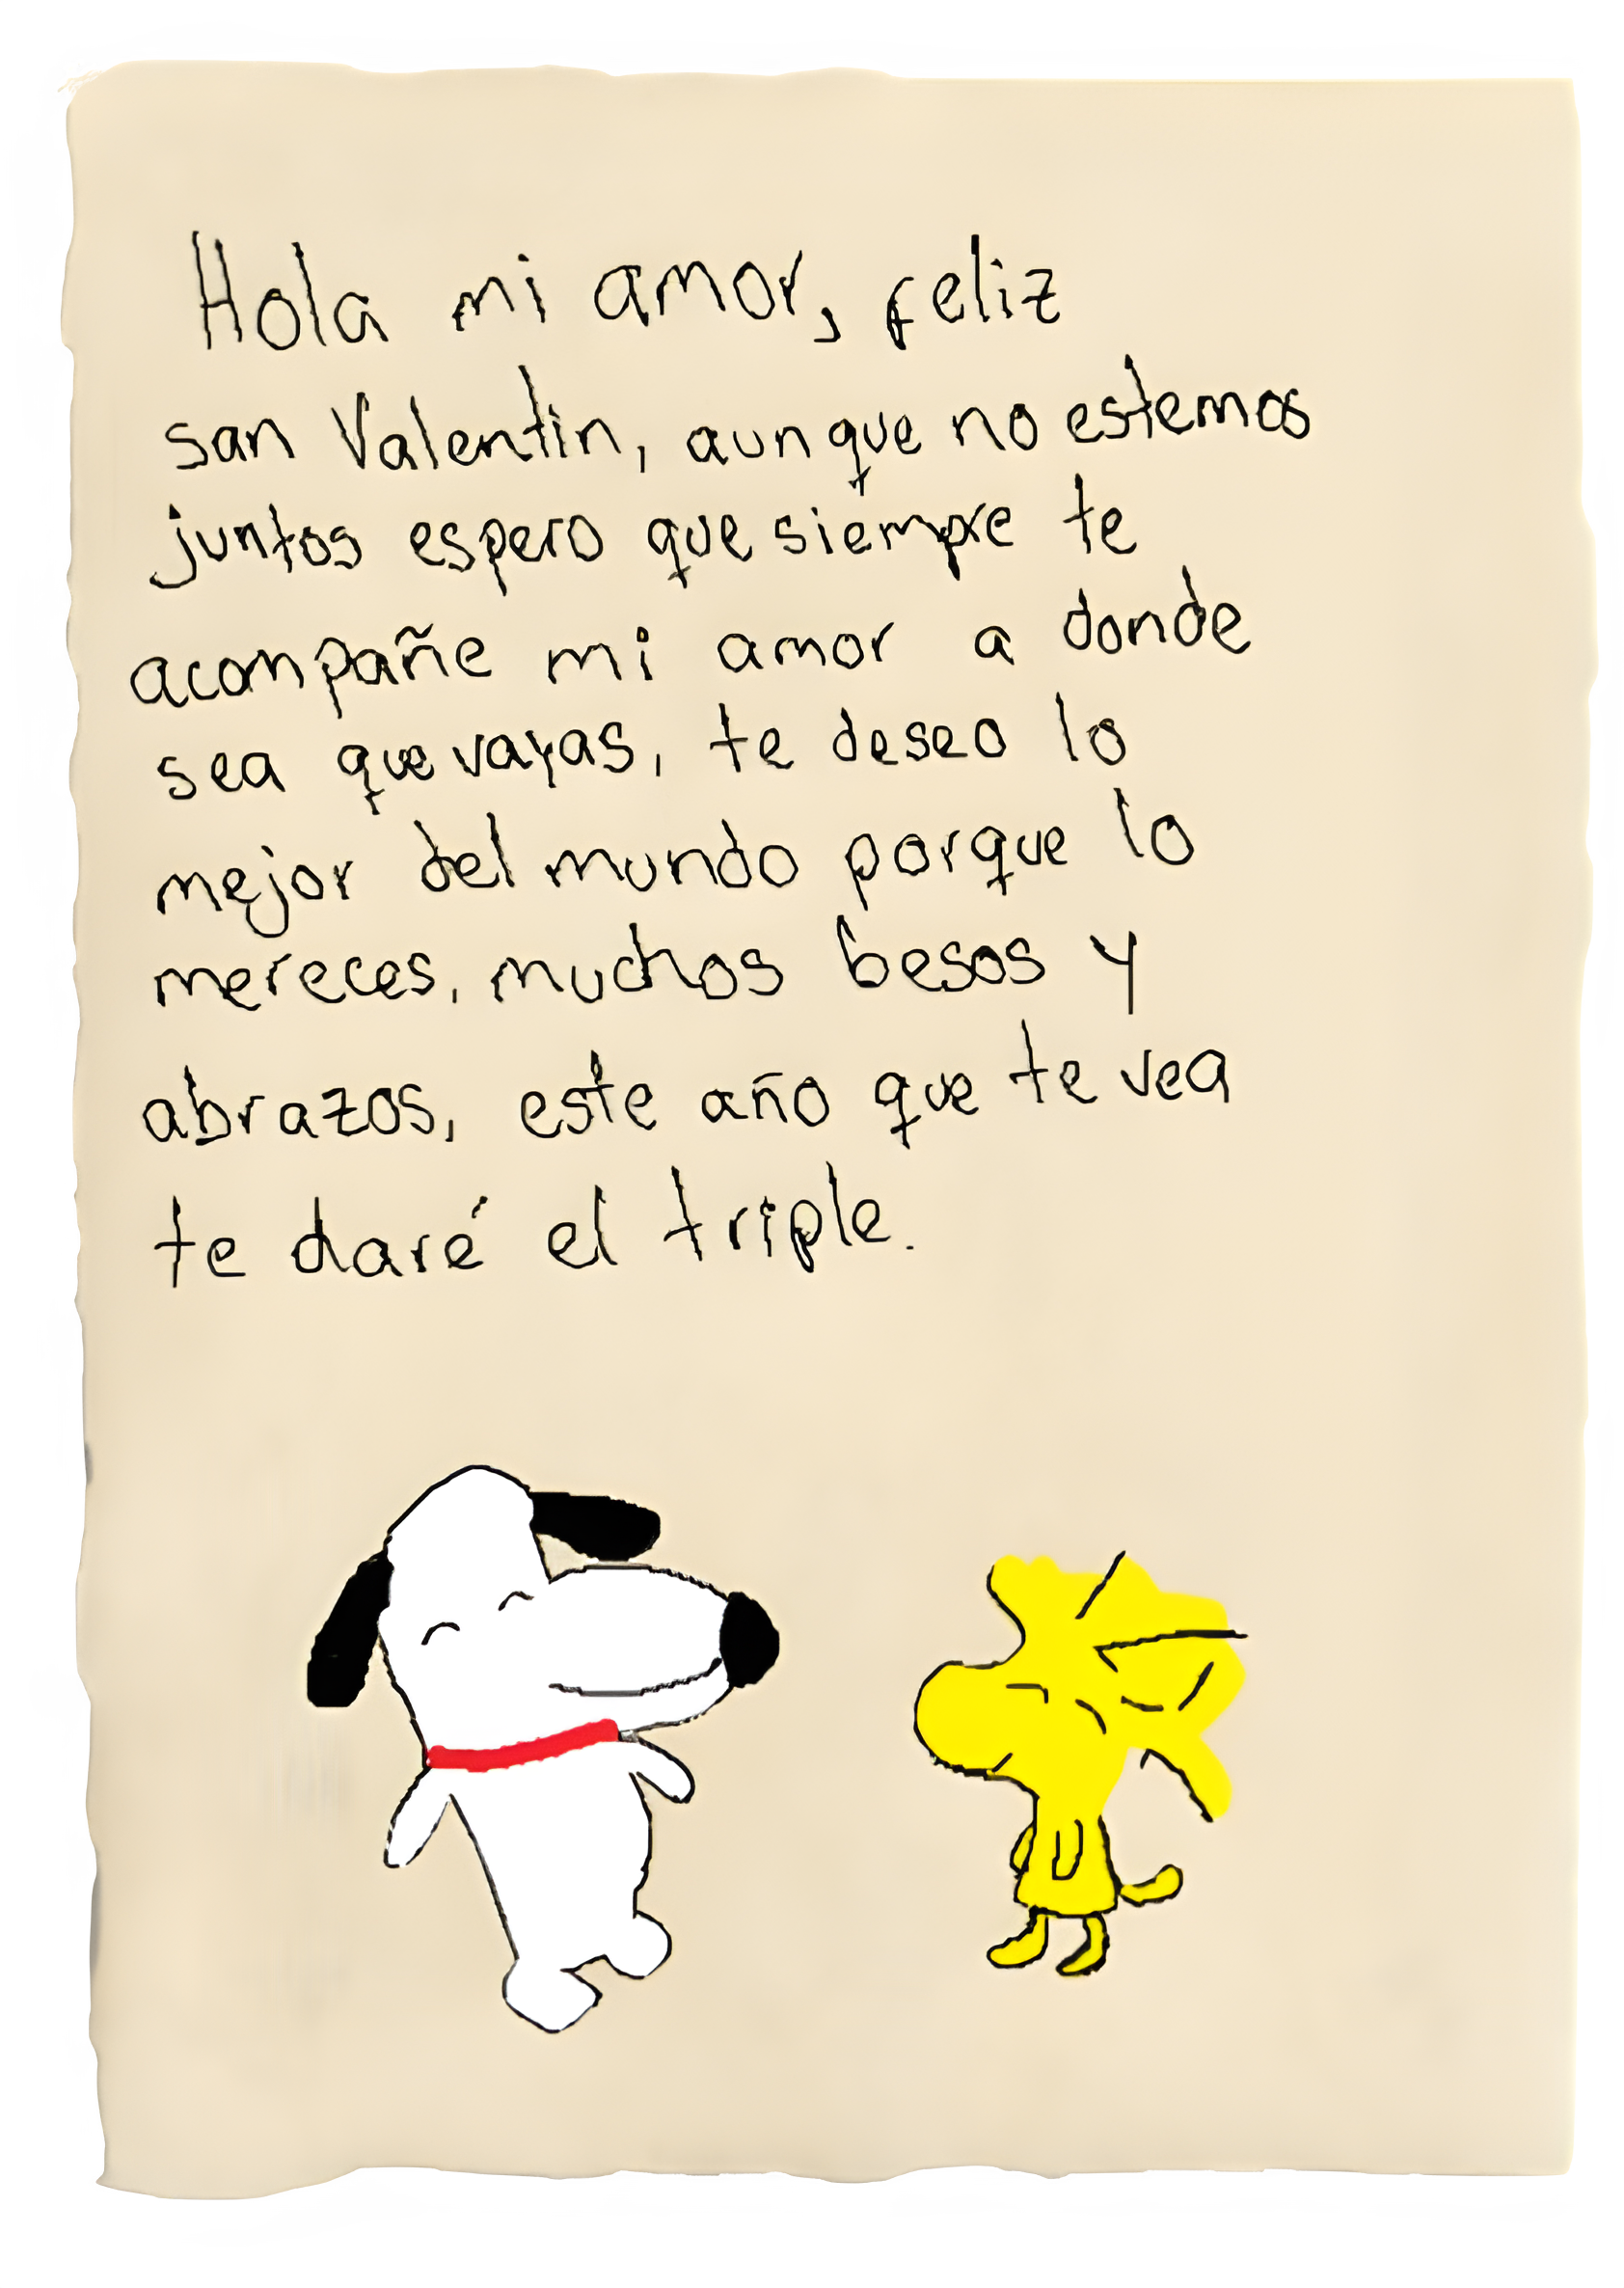 Hola mi amor, feliz
san Valentin, aunque no estemos
juntos espero que siempre te
acompañe mi amor a donde
sea que vayas, te deseo lo
mejor del mundo porque lo
mereces, muchos besos y
abrazos, este año que te vea
te daré el triple.